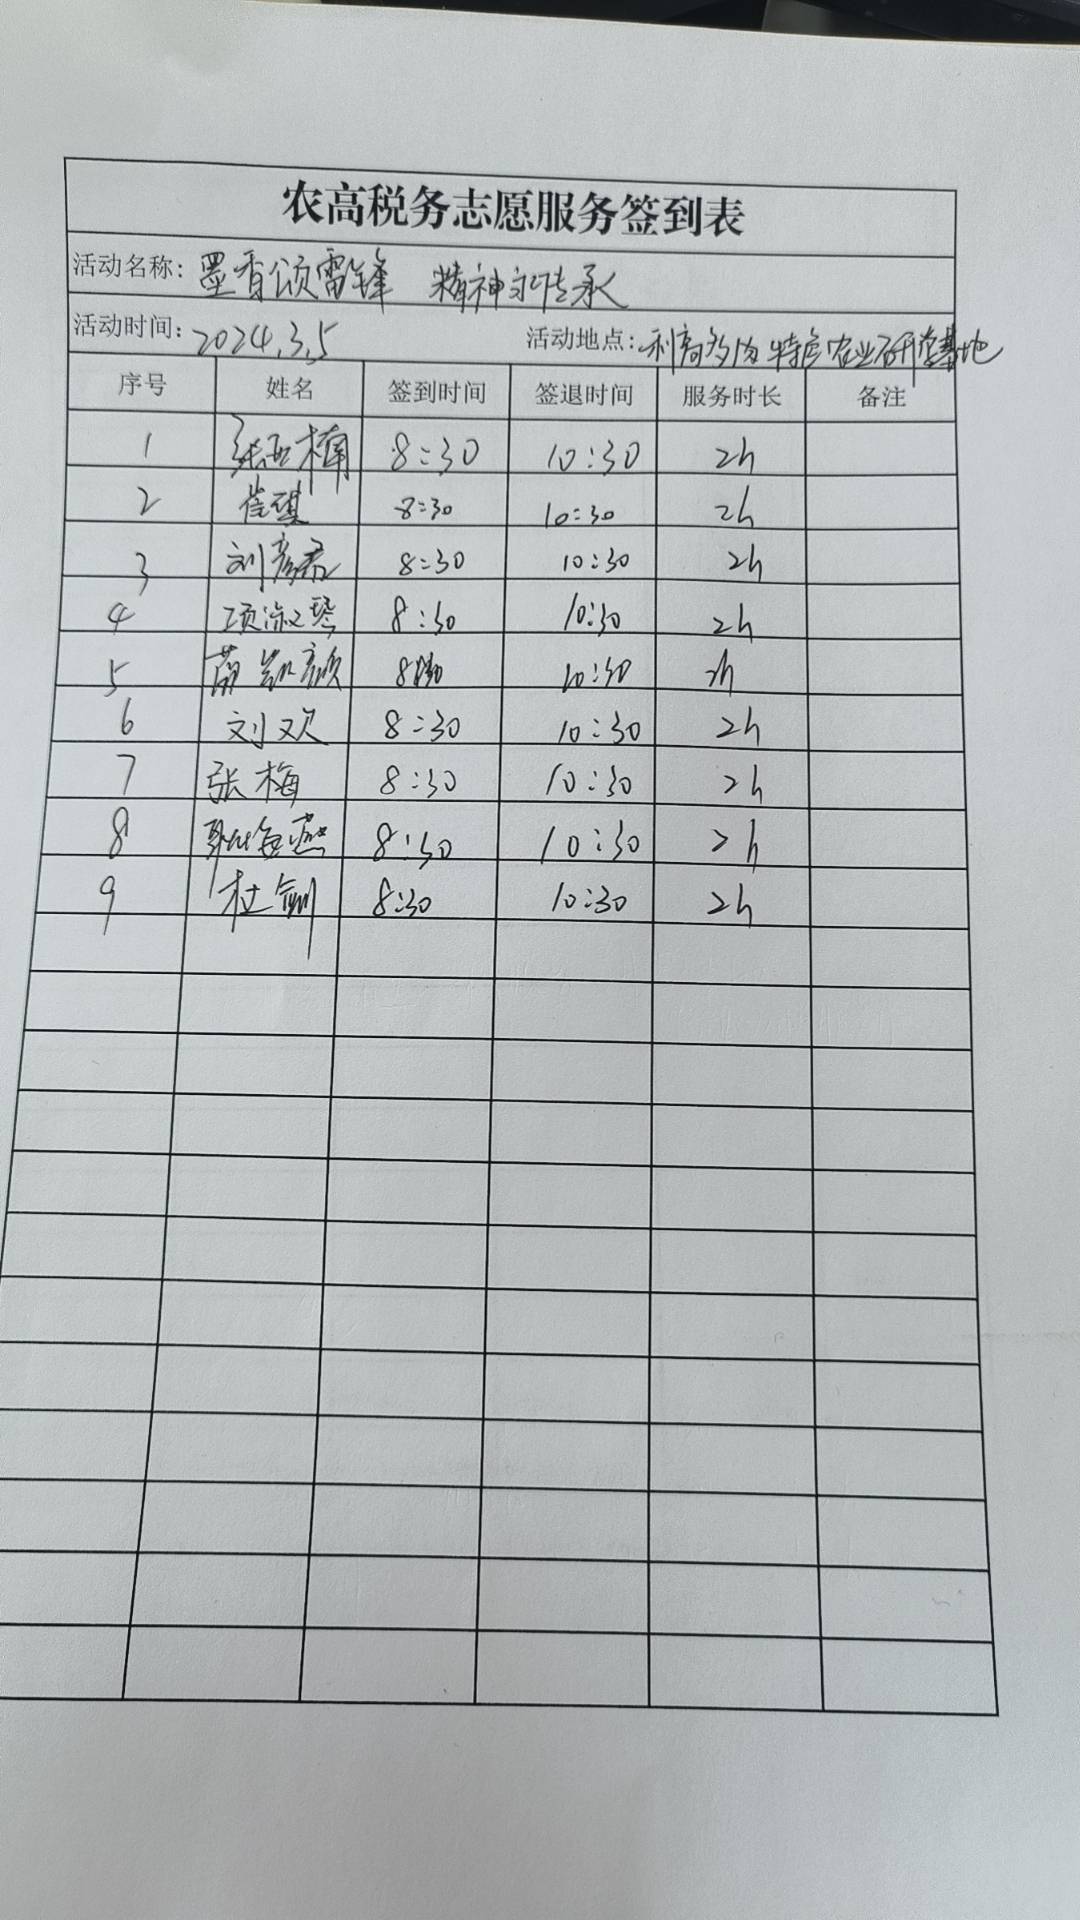 农高税务志愿服务签到表
活动名称: 墨香颂雷锋 精神永传承
活动时间: 2024.3.5
活动地点: 特色农业研学基地
序号 姓名 签到时间 签退时间 服务时长 备注
1 张亚楠 8:30 10:30 2h
2 崔琪 8:30 10:30 2h
3 刘彦君 8:30 10:30 2h
4 项淑琴 8:30 10:30 2h
5 8:30 10:30 2h
6 刘欢 8:30 10:30 2h
7 张梅 8:30 10:30 2h
8 8:30 10:30 2h
9 杜剑 8:30 10:30 2h